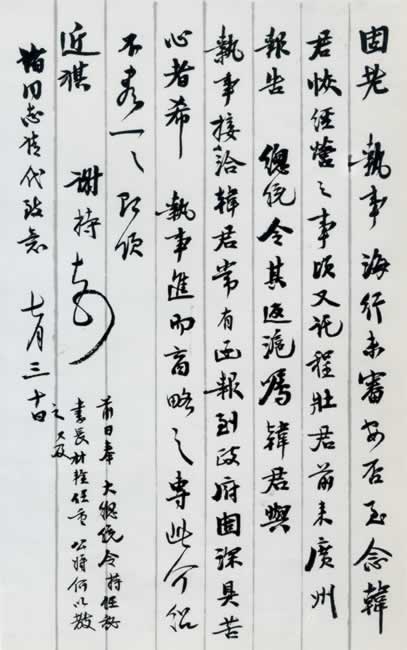 固老　執事　海行未審安否至念韓
君恢經營之事頃又託程壯君前来廣州
報告　總統令其返滬囑韓君與
執事接洽韓君常有函報到政府固深具苦
心者希　執事進而商略之専此介紹
不一一即頌
近祺　謝持
諸同志請代致意　七月三十日
前日奉　大總統令持任秘
書長材輇任重　公將何以教
之　又及